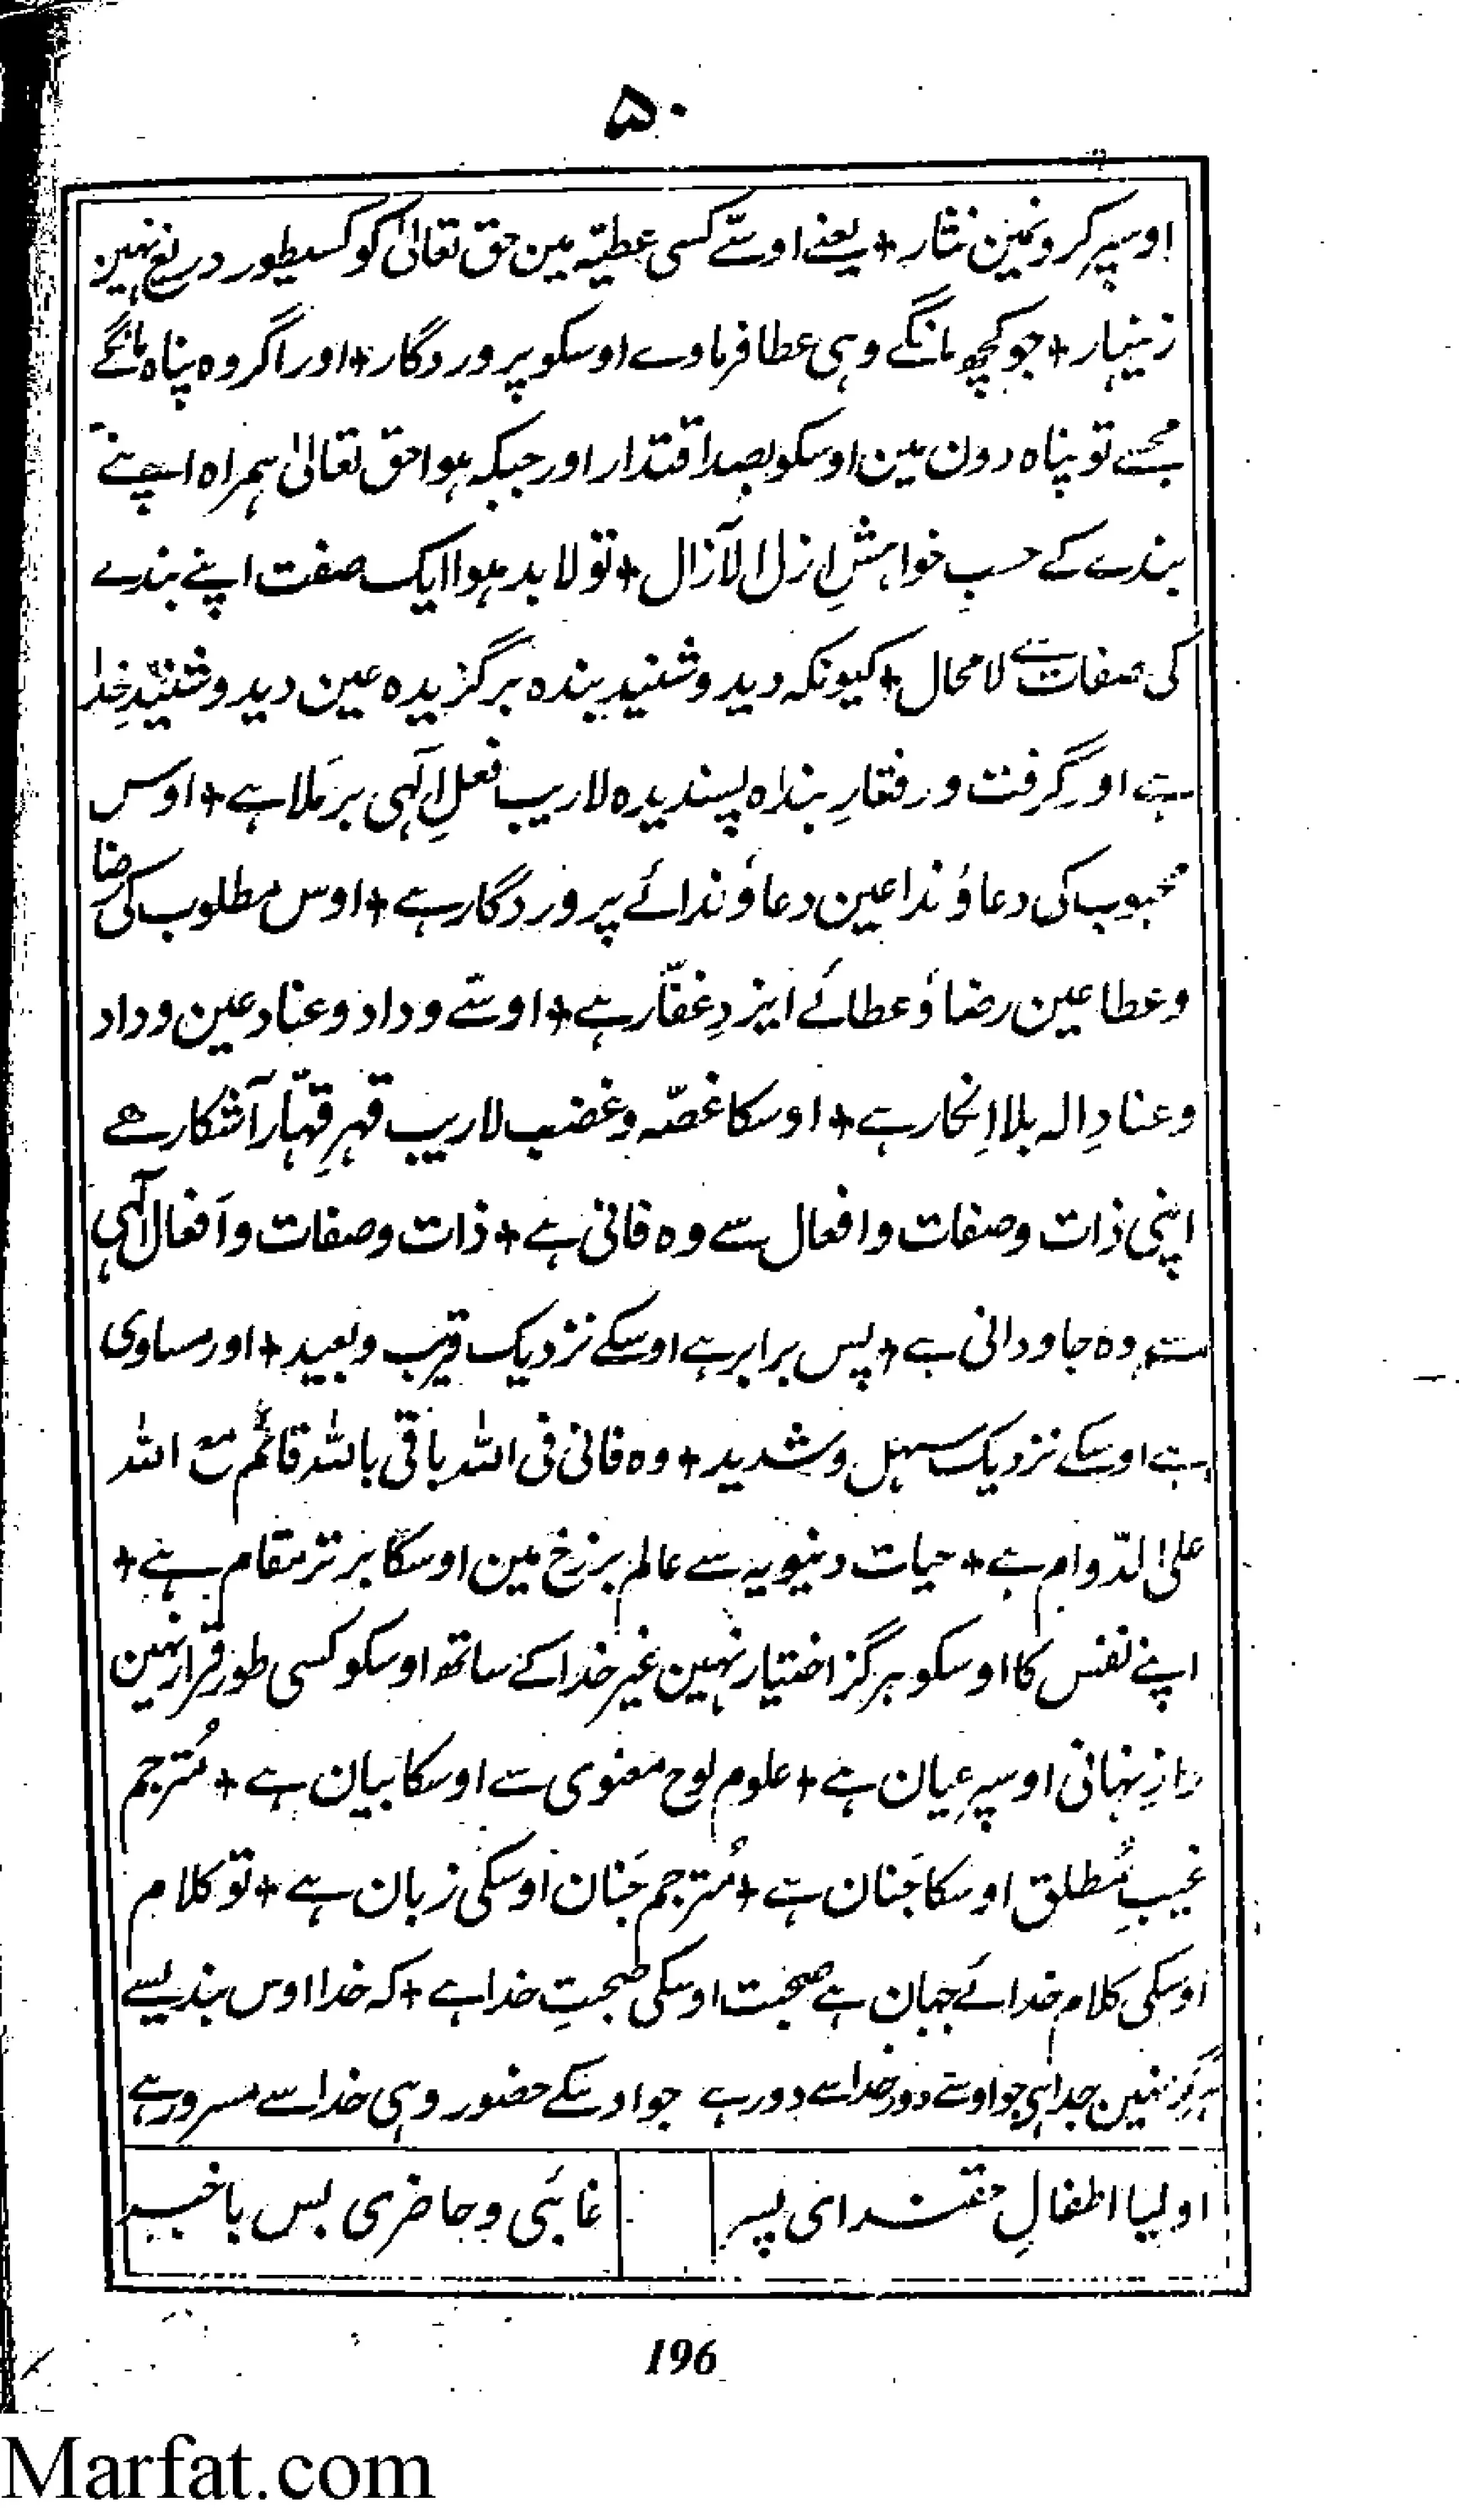 ۵۰
اوسپہ کرونمین نثار + یعنے اوسّے کسی عطیّہ مین حق تعالیٰ کو کسیطور دریغ نہین
زینہار + جو کچھ مانگے وہی عطا فرماوے اوسکو پروردگار + اور اگر وہ پناہ مانگے
مجھسے تو پناہ دون مین اوسکو بصد اقتدار اور جبکہ ہوا حق تعالیٰ ہمراہ اپنے
بندے کے حسبِ خواہشِ ازل الآزال + تو لابد ہوا ایک صفت اپنے بندے
کی صفات سے لامحال + کیونکہ دید و شنید بندہ برگزیدہ عین دید و شنیدِ خدا
ہے اور گرفت و رفتارِ بندہ پسندیدہ لاریب فعلِ الٰہی برمَلا ہے + اوس
محبوب کی دعا وٗ ندا عین دعا وٗ ندائے پروردگار ہے + اوس مطلوب کی رضا
و عطا عین رضا وٗ عطائے ایزدِ غفّار ہے + اوسّے وداد و عناد عین وداد
و عنادِ الہ بلا اِنکار ہے + اوسکا غصّہ و غضب لاریب قہرِ قہّار آشکار ہے
اپنی ذات و صفات و افعال سے وہ فانی ہے + ذات و صفات و اَفعال الٰہی
سے وہ جاودانی ہے + پس برابر ہے اوسکے نزدیک قریب و بعید + اور مساوی
ہے اوسکے نزدیک سہل و شدید + وہ فانی فی اللہ باقی باللہ قائم مع اللہ
علی الدّوام ہے + حیات دنیویہ سے عالم برزخ مین اوسکا برتر مقام ہے +
اپنے نفس کا اوسکو ہرگز اختیار نہین غیر خدا کے ساتھ اوسکو کسی طور قرار نہین
رازِ نہانی اوسپہ عیان ہے + علوم لوح معنوی سے اوسکا بیان ہے + مُترجم
غیبِ مُطلق اوسکا جَنان ہے + مُترجم جَنان اوسکی زبان ہے + تو کلام
اوسکی کلام خدائے جہان ہے صحبت اوسکی صحبتِ خدا ہے + کہ خدا اوس بندیسے
ہرگز نہین جدا ہی جو اوسّے دور خدا سے دور ہے جو اوسکے حضور وہی خدا سے مسرور ہے
اولیا اطفالِ حقند ای پسر
غائبی و حاضری بس باخبر
196
Marfat.com